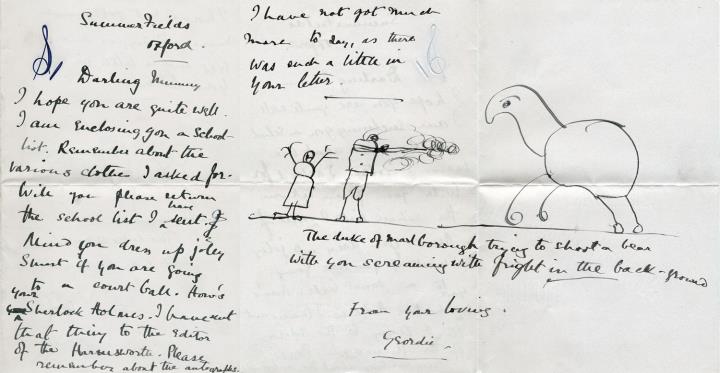 SummerFields
Oxford.
Darling Mummy
I hope you are quite well.
I am enclosing you a School
list. Remember about the
various clothes I asked for.
Will you please return
the school list I have sent.
Mind you dress up joley
Smart if you are going
to a court ball. How's
your Sherlock Holmes. I have sent
that thing to the Editor
of the Harmsworth. Please
remember about the autographs.
I have not got much
more to day, as there
was such a little in
your letter.
The duke of marlborough trying to shoot a bear
with you screaming with fright in the back-ground
From your loving.
Geordie.